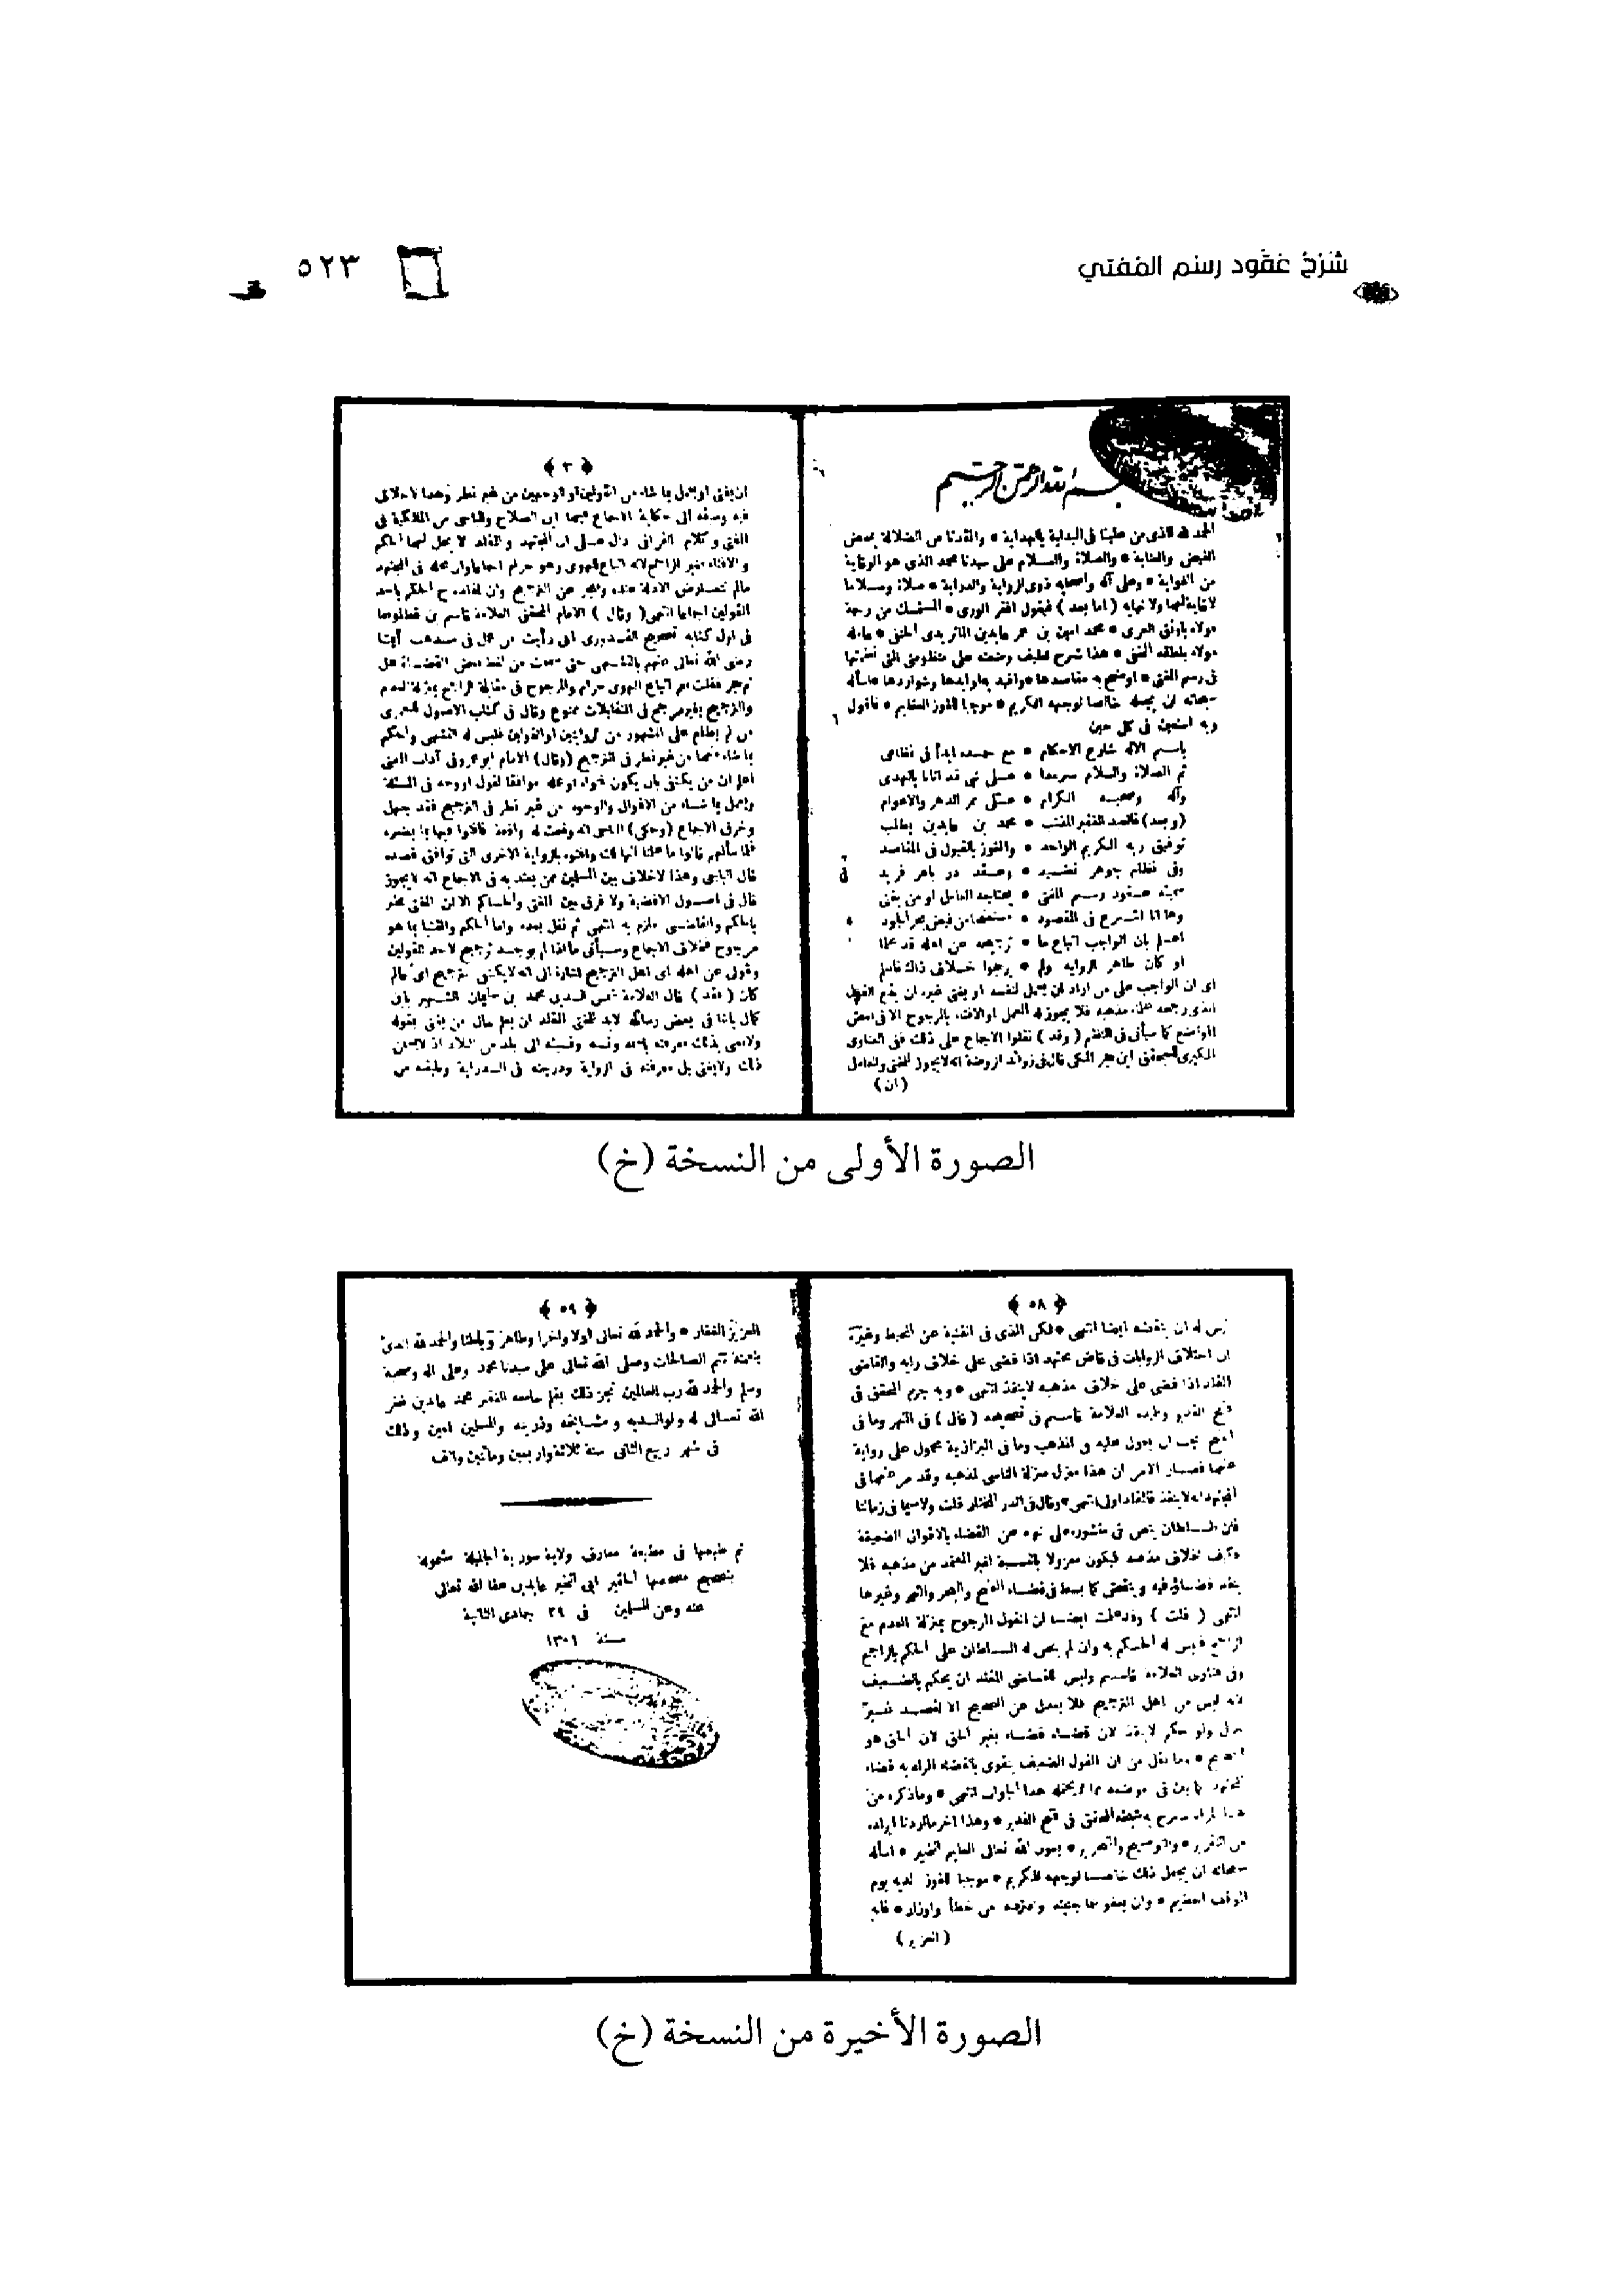 شرح عقود رسم المفتي
٥٢٣
بسم الله الرحمن الرحيم
الحمد لله الذي من علينا في البداية بالهداية * وانقذنا من الضلالة بمحض
الفيض والعناية * والصلاة والسلام على سيدنا محمد الذي هو الوقاية
من الغواية * وعلى آله واصحابه ذوى الرواية والدراية * صلاة وسلاما
لا غاية لهما ولا نهاية ( اما بعد ) فيقول افقر الورى * المستمسك من رحمة
مولاه باوثق العرى * محمد امين بن عمر عابدين الماتريدى الحنفى * عامله
مولاه بلطفه الخفى * هذا شرح لطيف وضعته على منظومتى التى نظمتها
فى رسم المفتى * اوضح به مقاصدها * واقيد به اوابدها وشواردها * اسأله
سبحانه ان يجعله خالصا لوجهه الكريم * موجبا للفوز العظيم * فاقول
وبه استعين فى كل حين
باسم الاله شارع الاحكام * مع حمده ابدأ فى نظامى
ثم الصلاة والسلام سرمدا * على نبى قد اتانا بالهدى
وآله وصحبه الكرام * على ممر الدهر والاعوام
(وبعد) فالعبد الفقير المذنب * محمد بن عابدين يطلب
توفيق ربه الكريم الواحد * والفوز بالقبول فى المقاصد
وفى نظام جوهر نضيد * وعقد در باهر فريد
سميته عقود رسم المفتى * يحتاجه العامل او من يفتى
وها انا اشرع فى المقصود * مستمنحا من فيض بحر الجود
اعلم بان الواجب اتباع ما * ترجيحه عن اهله قد علما
او كان ظاهر الرواية ولم * يرجحوا خلاف ذاك فاعلم
اى ان الواجب على من اراد ان يعمل لنفسه او يفتى غيره ان يتبع القول
الذى رجحه علماء مذهبه فلا يجوز له العمل او الافتاء بالمرجوح الا فى بعض
المواضع كما سيأتى فى النظم ( وقد ) نقلوا الاجماع على ذلك ففى الفتاوى
الكبرى للمحقق ابن حجر المكى قال فى زوائد الروضة انه لا يجوز للمفتى والعامل
(ان)
﴿ ٣ ﴾
ان يفتى او يعمل بما شاء من القولين او الوجهين من غير نظر وهذا لا خلاف
فيه وسبقه الى حكاية الاجماع فيهما ابن الصلاح والباجى من المالكية فى
المفتى وكلام القرافى دال على ان المجتهد والمقلد لا يحل لهما الحكم
والافتاء بغير الراجح لانه اتباع للهوى وهو حرام اجماعا وان محله فى المجتهد
مالم تتعارض الادلة عنده ويعجز عن الترجيح وان لمقلده ح الحكم باحد
القولين اجماعا انتهى ( وقال ) الامام المحقق العلامة قاسم بن قطلوبغا
فى اول كتابه تصحيح القدورى انى رأيت من عمل فى مذهب أئمتنا
رضى الله تعالى عنهم بالتشهى حتى سمعت من لفظ بعض القضاة هل
ثم حجر فقلت نعم اتباع الهوى حرام والمرجوح فى مقابلة الراجح بمنزلة العدم
والترجيح بغير مرجح فى المتقابلات ممنوع وقال فى كتاب الاصول لليعمرى
من لم يطلع على المشهور من الروايتين او القولين فليس له التشهى والحكم
بما شاء منهما من غير نظر فى الترجيح (وقال) الامام ابو عمرو فى آداب المفتى
اعلم ان من يكتفى بان يكون فتواه او عمله موافقا لقول او وجه فى المسئلة
ويعمل بما شاء من الاقوال والوجوه من غير نظر فى الترجيح فقد جهل
وخرق الاجماع (وحكى) الباجى انه وقعت له واقعة فافتوا فيها بما يضره
فلما سألهم قالوا ما علمنا انها لك وافتوه بالرواية الاخرى التى توافق قصده
قال الباجى وهذا لا خلاف بين المسلمين ممن يعتد به فى الاجماع انه لا يجوز
قال فى اصول الاقضية ولا فرق بين المفتى والحاكم الا ان المفتى مخبر
بالحكم والقاضى ملزم به انتهى ثم نقل بعده واما الحكم والفتيا بما هو
مرجوح فخلاف الاجماع وسيأتى ما اذا لم يوجد ترجيح لاحد القولين
وقولى عن اهله اى اهل الترجيح اشارة الى انه لا يكتفى بترجيح اى عالم
كان ( فقد ) قال العلامة شمس الدين محمد بن سليمان الشهير بابن
كمال باشا فى بعض رسائله لابد للمفتى المقلد ان يعلم حال من يفتى بقوله
ولا نعنى بذلك معرفته باسمه ونسبه ونسبته الى بلد من البلاد اذ لا يسمن
ذلك ولا يغنى بل معرفته فى الرواية ودرجته فى الدراية وطبقته من
الصورة الأولى من النسخة (خ)
﴿ ٥٨ ﴾
ليس له ان ينقضه ايضا انتهى * لكن الذى فى القنية عن المحيط وغيره
ان اختلاف الروايات فى قاض مجتهد اذا قضى على خلاف رايه والقاضى
المقلد اذا قضى على خلاف مذهبه لا ينفذ انتهى * وبه جزم المحقق فى
فتح القدير وتلميذه العلامة قاسم فى تصحيحه ( قال ) فى النهر وما فى
الفتح يجب ان يعول عليه فى المذهب وما فى البزازية محمول على رواية
عنهما فصار الامر ان هذا منزل منزلة الناسى لمذهبه وقد مر عنهما فى
المجتهد انه لا ينفذ فالمقلد اولى انتهى * وقال فى الدر المختار قلت ولا سيما فى زماننا
فان السلطان ينص فى منشوره على نهيه عن القضاء بالاقوال الضعيفة
فكيف بخلاف مذهبه فيكون معزولا بالنسبة لغير المعتمد من مذهبه فلا
ينفذ قضاؤه فيه وينقض كما بسط فى قضاء الفتح والبحر والنهر وغيرها
انتهى ( قلت ) وقد علمت ايضا ان القول المرجوح بمنزلة العدم مع
الراجح فليس له الحكم به وان لم ينص له السلطان على الحكم بالراجح
وفى فتاوى العلامة قاسم وليس للقاضى المقلد ان يحكم بالضعيف
لانه ليس من اهل الترجيح فلا يعدل عن الصحيح الا لقصد غير
جميل ولو حكم لا ينفذ لان قضاءه قضاء بغير الحق لان الحق هو
الصحيح * وما نقل من ان القول الضعيف يتقوى بالقضاء المراد به قضاء
المجتهد كما بين فى موضعه مما لا يحتمله هذا الجواب انتهى * وما ذكره من
هذا المراد صرح به شيخه المحقق فى فتح القدير * وهذا آخر ما اردنا ايراده
من التقرير * والتوضيح والتحرير * بعون الله تعالى العليم الخبير * اسأله
سبحانه ان يجعل ذلك خالصا لوجهه الكريم * موجبا للفوز لديه يوم
الموقف العظيم * وان يعفو عما جنيته واقترفته من خطأ واوزار * فانه
(العزيز)
﴿ ٥٩ ﴾
العزيز الغفار * والحمد لله تعالى اولا واخرا وظاهرا وباطنا والحمد لله الذى
بنعمته تتم الصالحات وصلى الله تعالى على سيدنا محمد وعلى اله وصحبه
وسلم والحمد لله رب العالمين نجز ذلك بقلم جامعه الفقير محمد عابدين غفر
الله تعالى له ولوالديه ومشايخه وذريته والمسلمين امين وذلك
فى شهر ربيع الثانى سنة ثلاث واربعين ومائتين والف
تم طبعها فى مطبعة معارف ولاية سورية الجليلة مشمولة
بتصحيح مصححها الحقير ابى الخير عابدين عفا الله تعالى
عنه وعن المسلمين فى ٢٩ جمادى الثانية
سنة ١٣٠١
الصورة الأخيرة من النسخة (خ)